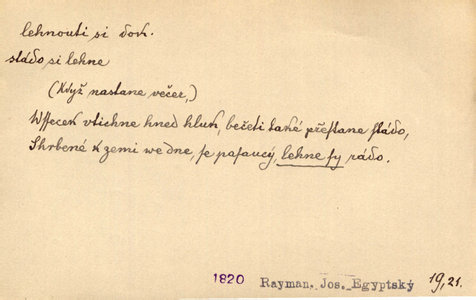 lehnouti si dok.
stádo si lehne
(Když nastane večer,)
Wssecek vtichne hned hluk, bečeti také přestane stádo,
Shrbené k zemi we dne, se pasaucý, lehne sy rádo.
1820 Rayman, Jos. Egyptský 19,21.